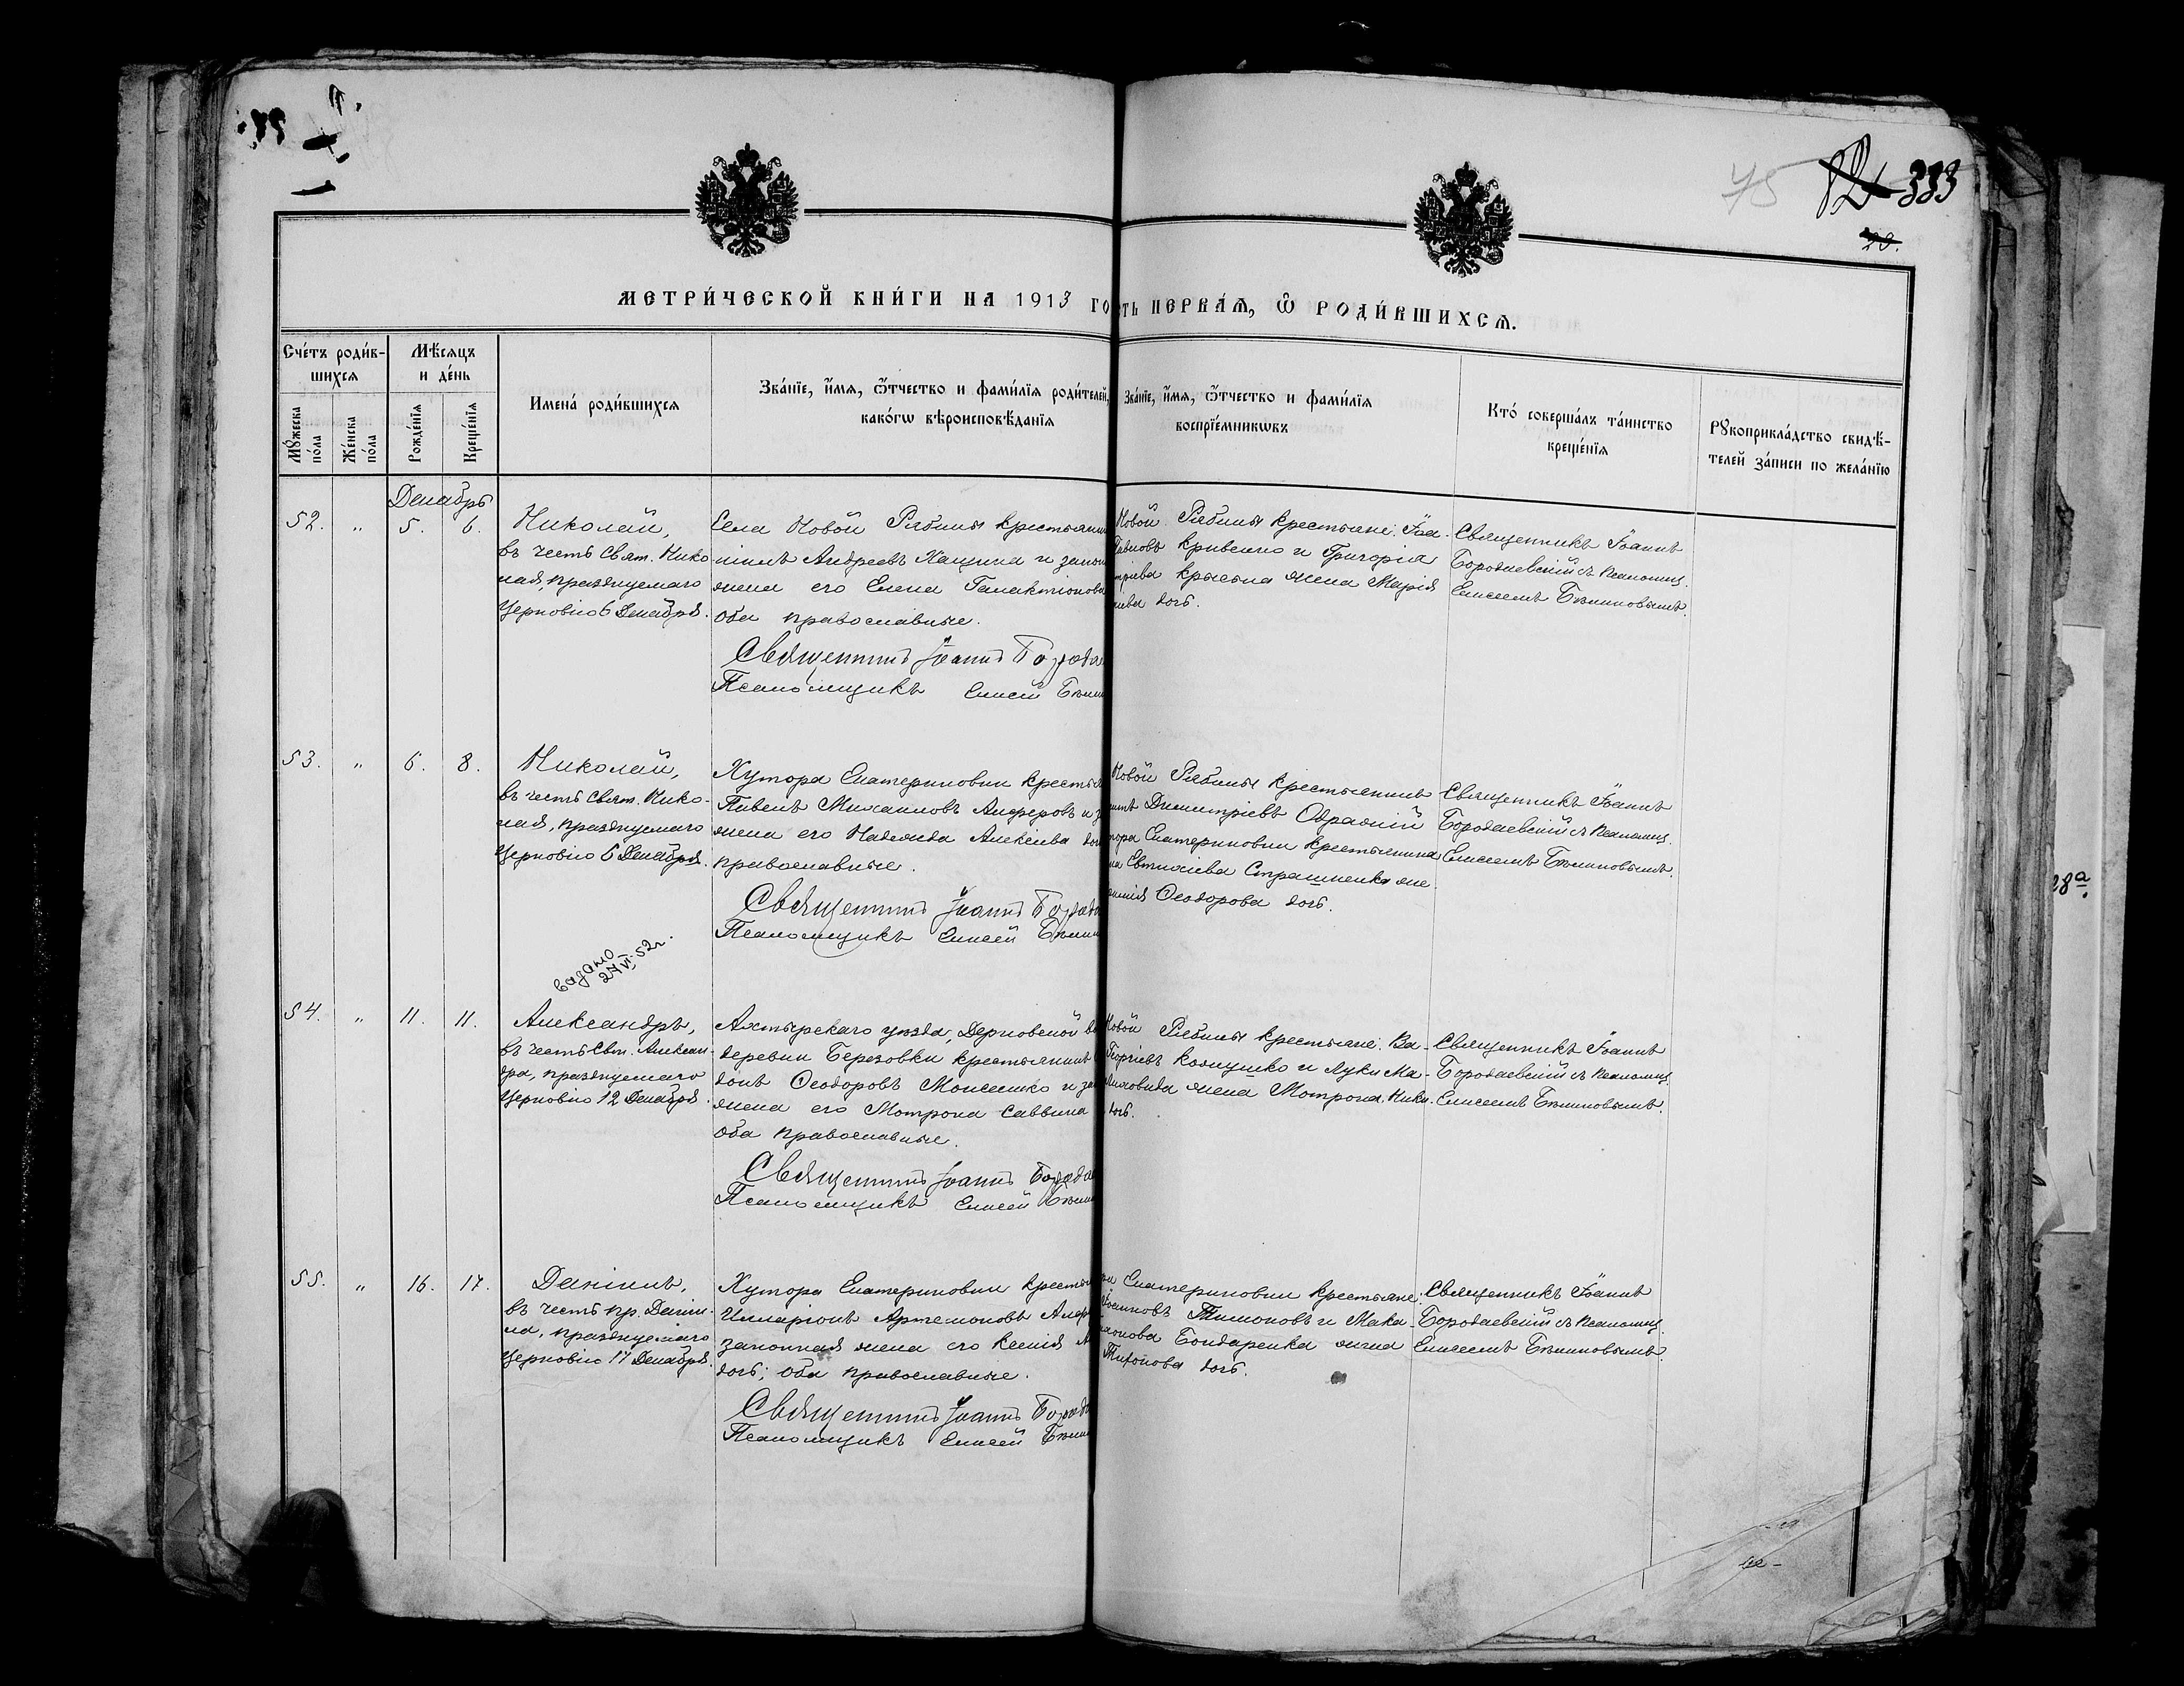 45 82 333
20.
МЕТРИ́ЧЕСКОЙ КНИ́ГИ НА 1913 ГО
СТЬ ПЕРВА́Ѧ, Ѽ РОДИ́ВШИХСѦ.
Сче́тъ роди́в-
шихсѧ
Мꙋ́жеска по́ла
Же́нска по́ла
Мѣ́сѧцъ
и де́нь
Рожде́нїѧ
Креще́нїѧ
Имена́ роди́вшихсѧ
Зва́нїе, и҆́мѧ, ѻ҆́тчество и фами́лїѧ роди́телей,
како́гѡ вѣроисповѣ́данїѧ
Зва́нїе, и҆́мѧ, ѻ҆́тчество и фами́лїѧ
воспрїе́мникѡвъ
Кто́ соверша́лъ та́инство
креще́нїѧ
Рꙋкоприкла́дство свидѣ́-
телей за́писи по жела́нїю
Декабрь
52. „ 5. 6.
Николай,
въ честь Свят. Нико
лая, празднуемаго
Церковію 6 Декабря.
Села Новой Рябины крестьянин
Андреевъ Хащина и закон
жена его Елена Галактіонова
оба православные.
Священникъ Іоаннъ Борода
Псаломщикъ Елисей
Новой Рябины крестьяне: Іоа-
Павловъ Кривенко и Григорія
жена Марія
дочь.
Священникъ Іоаннъ
Бородаевскій съ псаломщ.
53. „ 6. 8.
Николай,
въ честь Свят. Нико-
лая, празднуемаго
Церковію 6 Декабря.
Хутора Екатериновки крестья
Павелъ Михаиловъ Алферовъ и з
жена его Надежда Алексіева доч
православные.
Священникъ Іоаннъ Борода
Псаломщикъ Елисей
Новой Рябины крестьянинъ
Димитріевъ Ображій
тора Екатериновки крестьянина
Евтихіева Страшненко же
Ѳеодорова дочь.
Священникъ Іоаннъ
Бородаевскій съ псаломщ.
видано
27 VI. 52 г.
54. „ 11. 11.
Александръ,
въ честь Свт. Алексан-
дра, празднуемаго
Церковію 12 Декабря.
Ахтырскаго уѣзда, Дерновской во
деревни Березовки крестьянинъ
донъ Ѳеодоровъ Моисеенко и за
жена его Мотрона Саввина
оба православные.
Священникъ Іоаннъ Борода
Псаломщикъ Елисей
Новой Рябины крестьяне: Ва-
Георгіевъ и Луки Ма-
жена Мотрона Ники
дочь.
Священникъ Іоаннъ
Бородаевскій съ псаломщ.
55. „ 16. 17.
Даніилъ,
въ честь пр. Даніи-
ла, празднуемаго
Церковію 17 Декабря.
Хутора Екатериновки крестья
Илларіонъ Артемоновъ Алфе
законная жена его Ксенія
дочь; оба православные.
Священникъ Іоаннъ Борода
Псаломщикъ Елисей
Екатериновки крестьяне:
Тимоновъ и Мака-
Бондаренка жена
Тихонова дочь.
Священникъ Іоаннъ
Бородаевскій съ псаломщ.
28а.